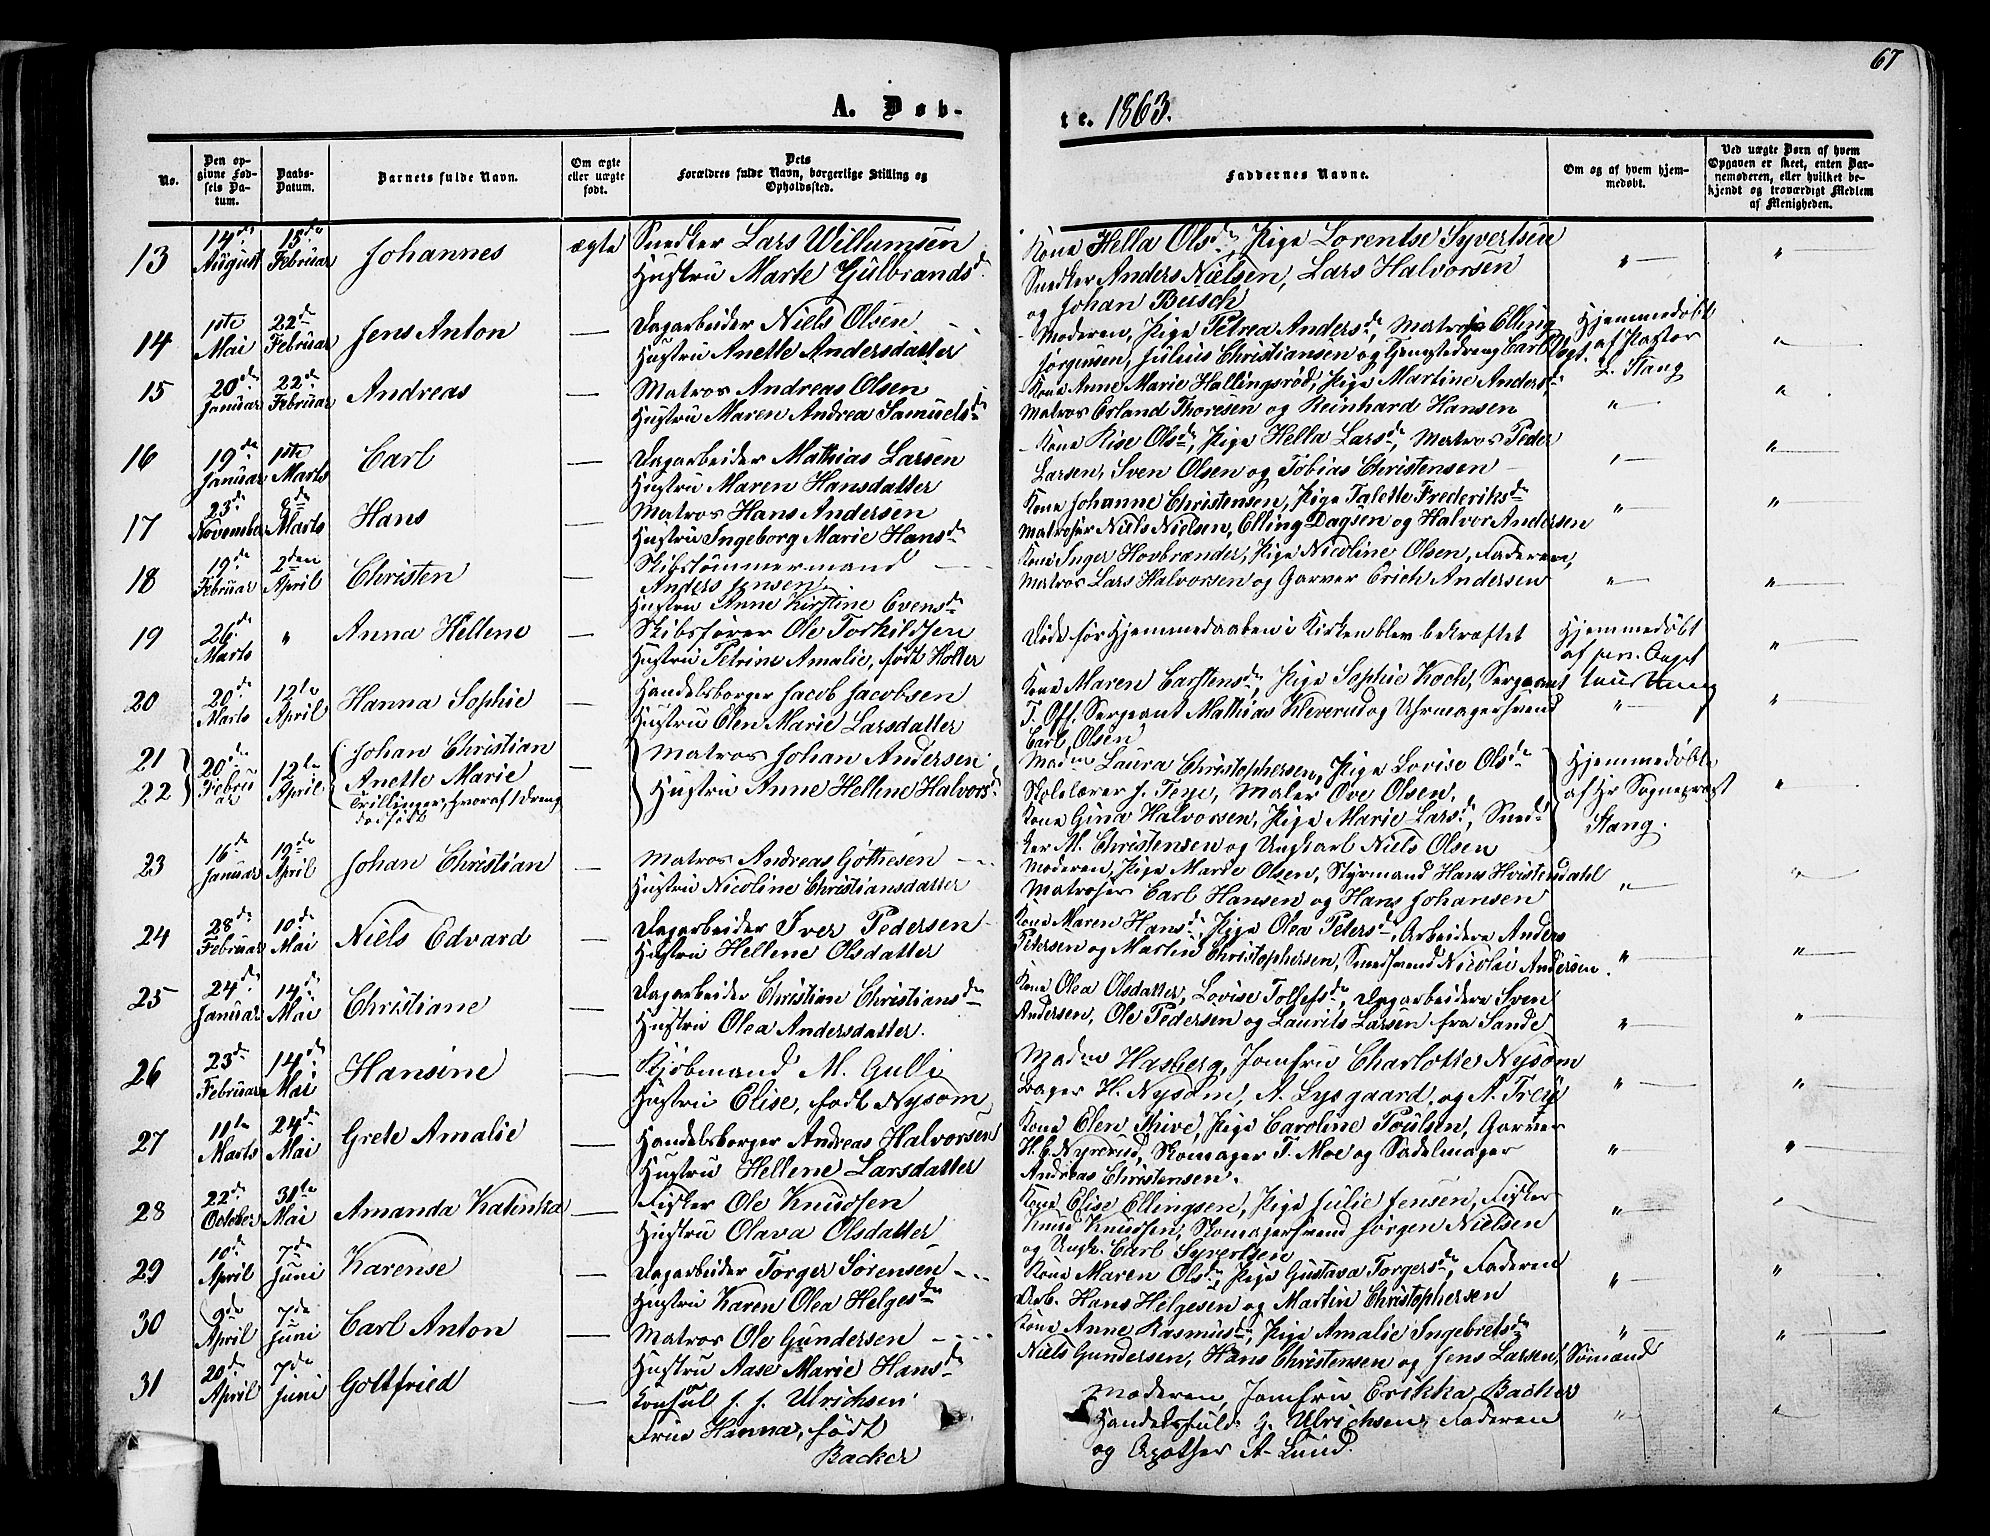 67
A. Døb-
te. 1863.
No.
Den opgivne Fødsels Datum.
Daabs-Datum.
Barnets fulde Navn.
Om ægte eller uægte født.
Dets Forældres fulde Navn, borgerlige Stilling og Opholdssted.
Faddernes Navne.
Om og af hvem hjemmedøbt.
Ved uægte Børn af hvem Opgaven er skeet, enten Barnemoderen, eller hvilket bekjendt og troværdigt Medlem af Menigheden.
13 14de August 15de Februar Johannes ægte Snedker Lars Willumsen
Hustru Marte Gulbrandsd.
Kone Hella Olsdr, Pige Lorentse Syvertsen
Snedker Anders Nielsen, Lars Halvorsen
og Johan Beisch
14 1ste Mai 22de Februar Jens Anton — Dagarbeider Niels Olsen
Hustru Anette Andersdatter
Moderen, Pige Petrea Andersdr, Matros Elling
Jørgensen, Julius Christiansen og Tjenestedreng Carl Vogt.
Hjemmedøbt
af Pastor
L. Stang
15 20de Januar 22de Februar Andreas — Matros Andreas Olsen
Hustru Maren Andrea Samuelsdr
Kone Anne Marie Hallingsrød, Pige Martine Andersdr,
Matros Erland Thoresen og Reinhard Hansen
16 19de Januar 1ste Marts Carl — Dagarbeider Mathias Larsen
Hustru Maren Hansdatter
Kone Kise Olsdr, Pige Hella Larsdr, Matros Peder
Larsen, Sven Olsen og Tobias Christensen
17 23de November 8de Marts Hans — Matros Hans Andersen
Hustru Ingeborg Marie Hansdr
Kone Johanne Christensen, Pige Talette Frederiksdr
Matroser Niels Nielsen, Elling Dagsen og Halvor Andersen
18 19de Februar 2den April Christen — Skibstømmermand
Anders Jensen
Hustru Anne Kirstine Evensdr
Kone Inger Hovbrænder, Pige Nicoline Olsen, Faderen,
Matros Lars Halvorsen og Garver Erich Andersen
19 26de Marts " Anna Hellene — Skibsfører Ole Torkildsen
Hustru Petrine Amalie, født Holter
Døde før Hjemmedaaben i Kirken blev bekræftet
Hjemmedøbt
af pers. Capl
20 20de Marts 12te April Hanna Sophie — Handelsborger Jacob Jacobsen
Hustru Elen Marie Larsdatter
Kone Maren Carstensdr, Pige Sophie Koch, Sergeant
T. Off, Sergeant Mathias Kleverud og Uhrmagersvend
Carl Olsen
21 22 20de Februar 12te April Johan Christian
Anette Marie
Trillinger, hvoraf 1 dreng
dødfødt
— Matros Johan Andersen
Hustru Anne Hellene Halvorsdr
Madm Laura Christophersen, Pige Lovise Olsdr
Skolelærer J. Teye, Maler Ove Olsen.
Kone Gina Halvorsen, Pige Marie Larsdr, Sned-
ker M. Christensen og Ungkarl Niels Olsen
Hjemmedøbte
af Hr Sogneprest
Stang.
23 16de Januar 19de April Johan Christian — Matros Andreas Göttiesen
Hustru Nicoline Christiansdatter
Moderen, Pige Marie Olsen, Styrmand Hans Hvistendahl
Matroser Carl Hansen og Hans Johansen
24 28de Februar 10de Mai Niels Edvard — Dagarbeider Iver Pedersen
Hustru Hellene Olsdatter
Kone Maren Hansdr, Pige Olea Petersdr, Arbeidere Anders
Petersen og Martin Christophersen, Smedsvend Nicolai Andersen.
25 24de Januar 14de Mai Christiane — Dagarbeider Christian Christiansdr
Hustru Olea Andersdatter.
Kone Olea Olsdatter, Lovise Tollefsdr, Dagarbeidere Sven
Andersen, Ole Pedersen og Laurits Larsen fra Sande
26 23de Februar 14de Mai Hansine — Kjøbmand M. Gulli
Hustru Elise, født Nysom
Madm Hasberg, Jomfru Charlotte Nysom
Bager H. Nysom, A. Lysgaard, og A. Frey
27 11te Marts 24de Mai Grete Amalie — Handelsborger Andreas Halvorsen
Hustru Hellene Larsdatter
Kone Elen Skive, Pige Caroline Poulsen, Garver
H. C. Nyrerud, Skomager T. Moe og Sadelmager
Andreas Christensen.
28 22de October 31te Mai Amanda Katinka — Fisker Ole Knudsen
Hustru Olava Olsdatter
Kone Elise Ellingsen, Pige Julie Jensen, Fisker
Knud Knudsen, Skomagersvend Jørgen Nielsen
og Ungk. Carl Syvertsen
29 10de April 7de Juni Karense — Dagarbeider Torger Sørensen
Hustru Karen Olea Helgesdr
Kone Maren Olsdr, Pige Gustava Torgersdr, Faderen
Arb. Hans Helgesen og Martin Christophersen
30 9de April 7de Juni Carl Anton — Matros Ole Gundersen
Hustru Aase Marie Hansdr
Kone Anne Rasmusdr, Pige Amalie Ingebretsdr
Niels Gundersen, Hans Christensen og Jens Larsen, Sømænd
31 20de April 7de Juni Gottfried — Konsul J. J. Ulrichsen
Frue Hanna, født
Backer
Moderen, Jomfru Erikka Backer
Handelsfuld. G. Ulrichsen, Faderen
og Apother A. Lund.